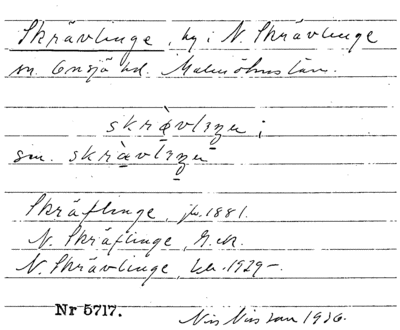 Skrävlinge, by i N. Skrävlinge
sn. Oxie hd. Malmöhus län.
skrävlinge;
sm. skrävlinge
Skräflinge, jb. 1881.
N. Skräflinge, G.ek.
N. Skrävlinge, 1929-.
Nr 5717.
Nils Nilsson 1936.